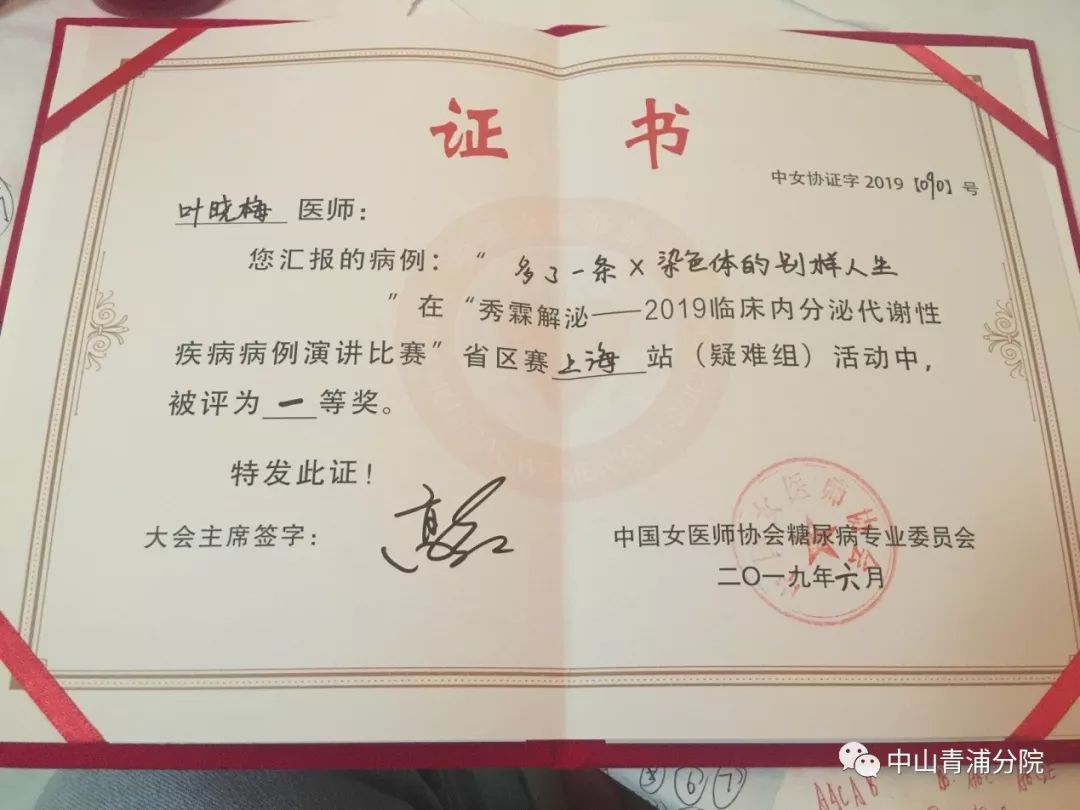 证 书
中女协证字 2019 [090] 号
叶晓梅 医师：
您汇报的病例：“ 多了一条X染色体的别样人生
”在“秀霖解泌——2019临床内分泌代谢性
疾病病例演讲比赛”省区赛 上海 站（疑难组）活动中，
被评为 一 等奖。
特发此证！
大会主席签字：
中国女医师协会糖尿病专业委员会
二〇一九年六月
女医师协会
中山青浦分院
⑤ ⑥ ⑦